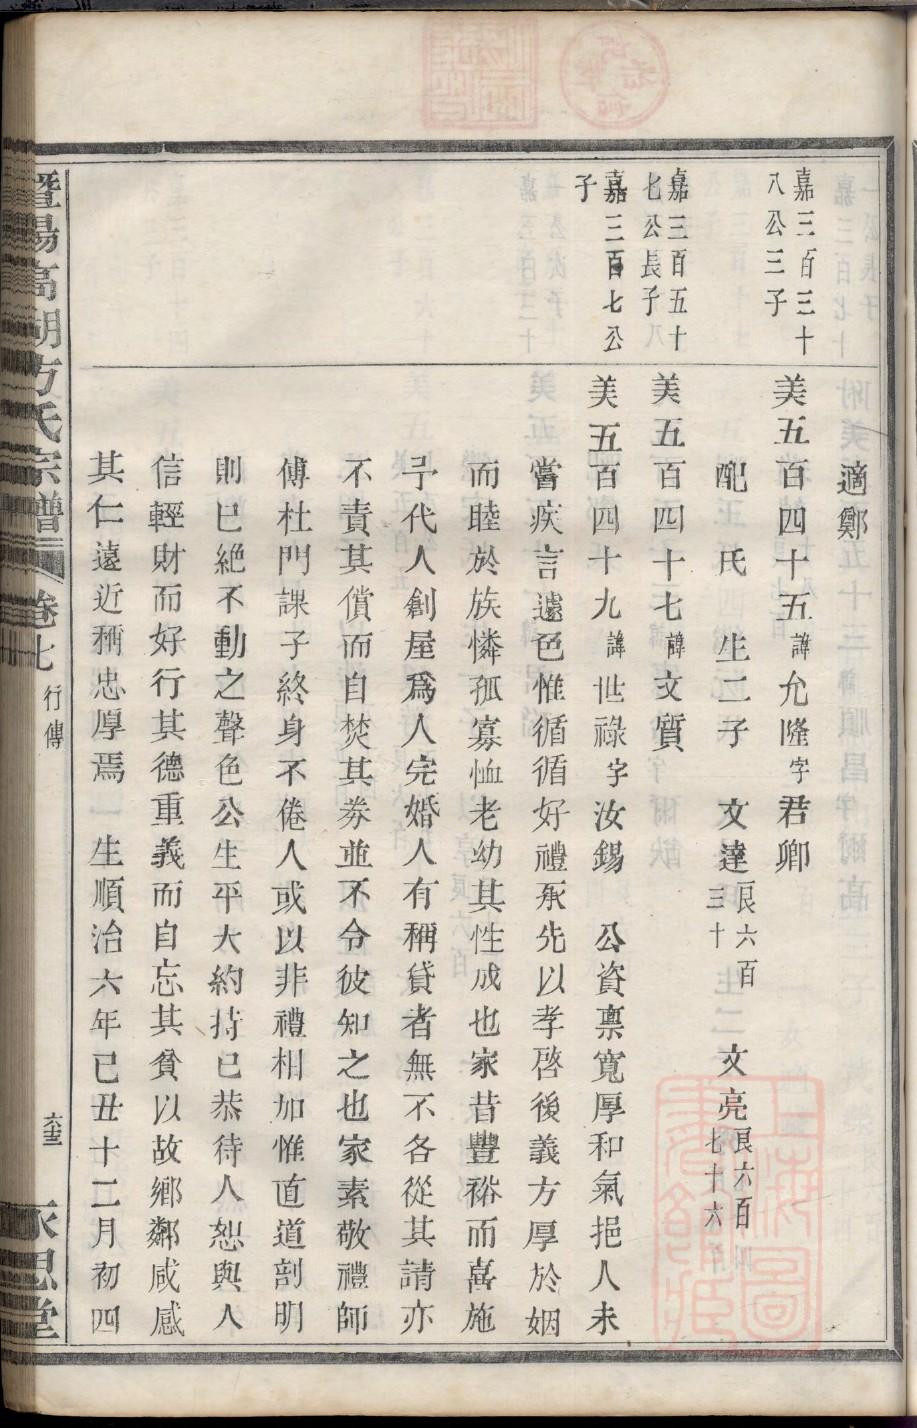 適鄭
嘉三百三十
八公三子
美五百四十五諱允隆字君卿
配氏 生二子 文達艮六百三十 文亮艮六百七十六
嘉三百五十
七公長子
美五百四十七諱文質
嘉三百七公
子
美五百四十九諱世祿字汝錫 公資禀寬厚和氣挹人未
嘗疾言遽色惟循循好禮承先以孝啓後義方厚於姻
而睦於族憐孤寡恤老幼其性成也家昔豐裕而喜施
予代人創屋爲人完婚人有稱貸者無不各從其請亦
不責其償而自焚其券並不令彼知之也家素敬禮師
傅杜門課子終身不倦人或以非禮相加惟直道剖明
則已絕不動之聲色公生平大約持已恭待人恕與人
信輕財而好行其德重義而自忘其貧以故鄉鄰咸感
其仁遠近稱忠厚焉 生順治六年已丑十二月初四
暨陽高湖方氏宗譜 卷七 行傳 永思堂